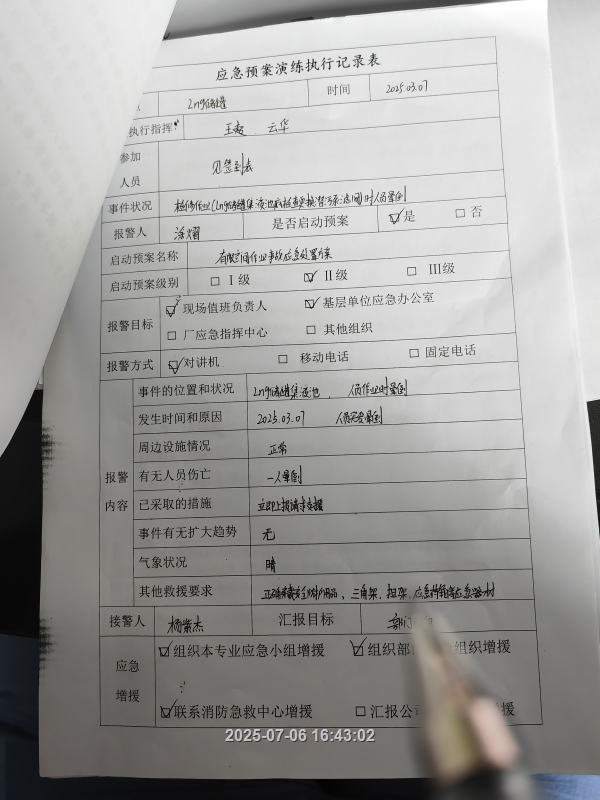 应急预案演练执行记录表
Lng储罐 时间 2025.03.07
执行指挥 云华
参加
人员 见签到表
事件状况
报警人 是否启动预案 ☑是 □否
启动预案名称 有限空间作业事故应急处置方案
启动预案级别 □Ⅰ级 ☑Ⅱ级 □Ⅲ级
报警目标 ☑现场值班负责人 ☑基层单位应急办公室
□厂应急指挥中心 □其他组织
报警方式 ☑对讲机 □移动电话 □固定电话
报警内容
事件的位置和状况 Lng储罐集液池、人员作业时晕倒
发生时间和原因 2025.03.07 人员晕倒
周边设施情况 正常
有无人员伤亡 一人晕倒
已采取的措施 立即上报请求支援
事件有无扩大趋势 无
气象状况 晴
其他救援要求 三角架、担架、
接警人 杨紫杰 汇报目标 部门
应急增援
☑组织本专业应急小组增援 ☑组织部 组织增援
☑联系消防急救中心增援 □汇报公 援
2025-07-06 16:43:02